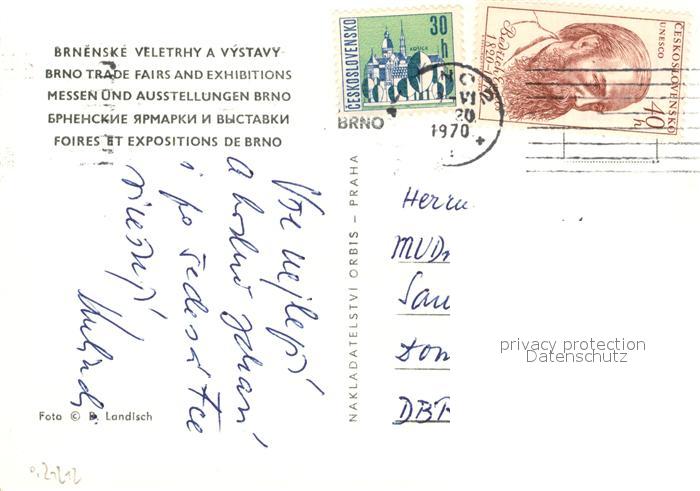 BRNĚNSKÉ VELETRHY A VÝSTAVY
BRNO TRADE FAIRS AND EXHIBITIONS
MESSEN UND AUSSTELLUNGEN BRNO
БРНЕНСКИЕ ЯРМАРКИ И ВЫСТАВКИ
FOIRES ET EXPOSITIONS DE BRNO
ČESKOSLOVENSKO
30 h
KOŠICE
ČESKOSLOVENSKO
UNESCO
40 h
1820
BRNO
20
1970
NAKLADATELSTVÍ ORBIS – PRAHA
Vše nejlepší
a hodně zdraví
i po šedesátce
Herrn
MUDr
San
Don
privacy protection
Datenschutz
Foto © B. Landisch